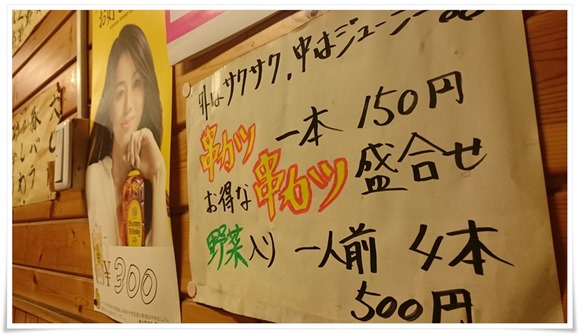 外はサクサク、中はジューシー
串カツ 一本 150円
お得な 串カツ 盛合せ
野菜入り 一人前 4本
500円
¥300